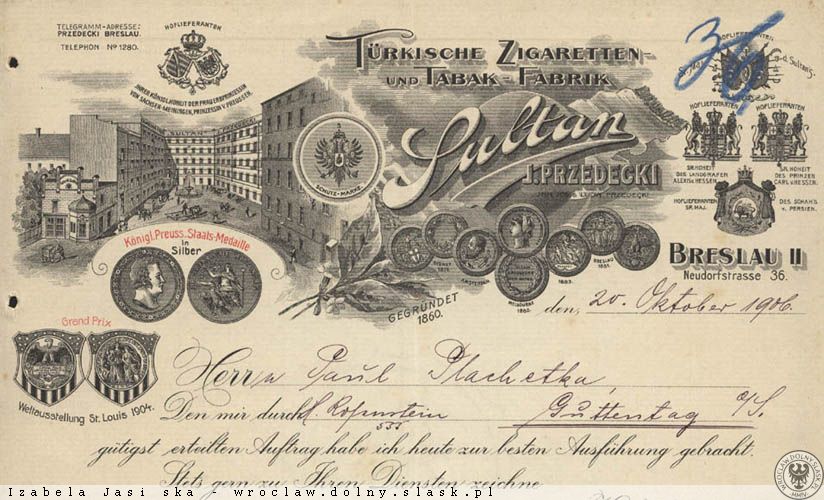 TELEGRAMM-ADRESSE:
PRZEDECKI BRESLAU.
TELEPHON No 1280.
HOFLIEFERANTEN
IHRER KÖNIGL. HOHEIT DER FRAU ERBPRINZESSIN
VON SACHSEN-MEININGEN, PRINZESSIN V. PREUSSEN.
TÜRKISCHE ZIGARETTEN-
UND TABAK-FABRIK
Sultan
J. PRZEDECKI
SULTAN
SCHUTZ-MARKE.
36
HOFLIEFERANTEN
Sr. Maj. d. Sultans
HOFLIEFERANTEN
SR. HOHEIT
DES LANDGRAFEN
ALEXIS v. HESSEN
HOFLIEFERANTEN
SR. HOHEIT
DES PRINZEN
CARL v. HESSEN.
HOFLIEFERANTEN
SR. MAJ.
DES SCHAH'S
V. PERSIEN.
Königl. Preuss. Staats-Medaille
in
Silber
SIDNEY
1879.
AMSTERDAM
MELBOURNE
1883.
BRESLAU
1881.
GEGRÜNDET
1860.
BRESLAU II
Neudorfstrasse 36.
den, 20. Oktober 1906.
Grand Prix
Weltausstellung St. Louis 1904.
Herrn Paul Plachetka,
Guttentag O/S.
Den mir durch H. Rosenstein
gütigst erteilten Auftrag habe ich heute zur besten Ausführung gebracht.
Stets gern zu Ihren Diensten zeichne
Izabela Jasi ska - wroclaw.dolny.slask.pl
WROCLAW.DOLNY.SLASK.PL
MMIV